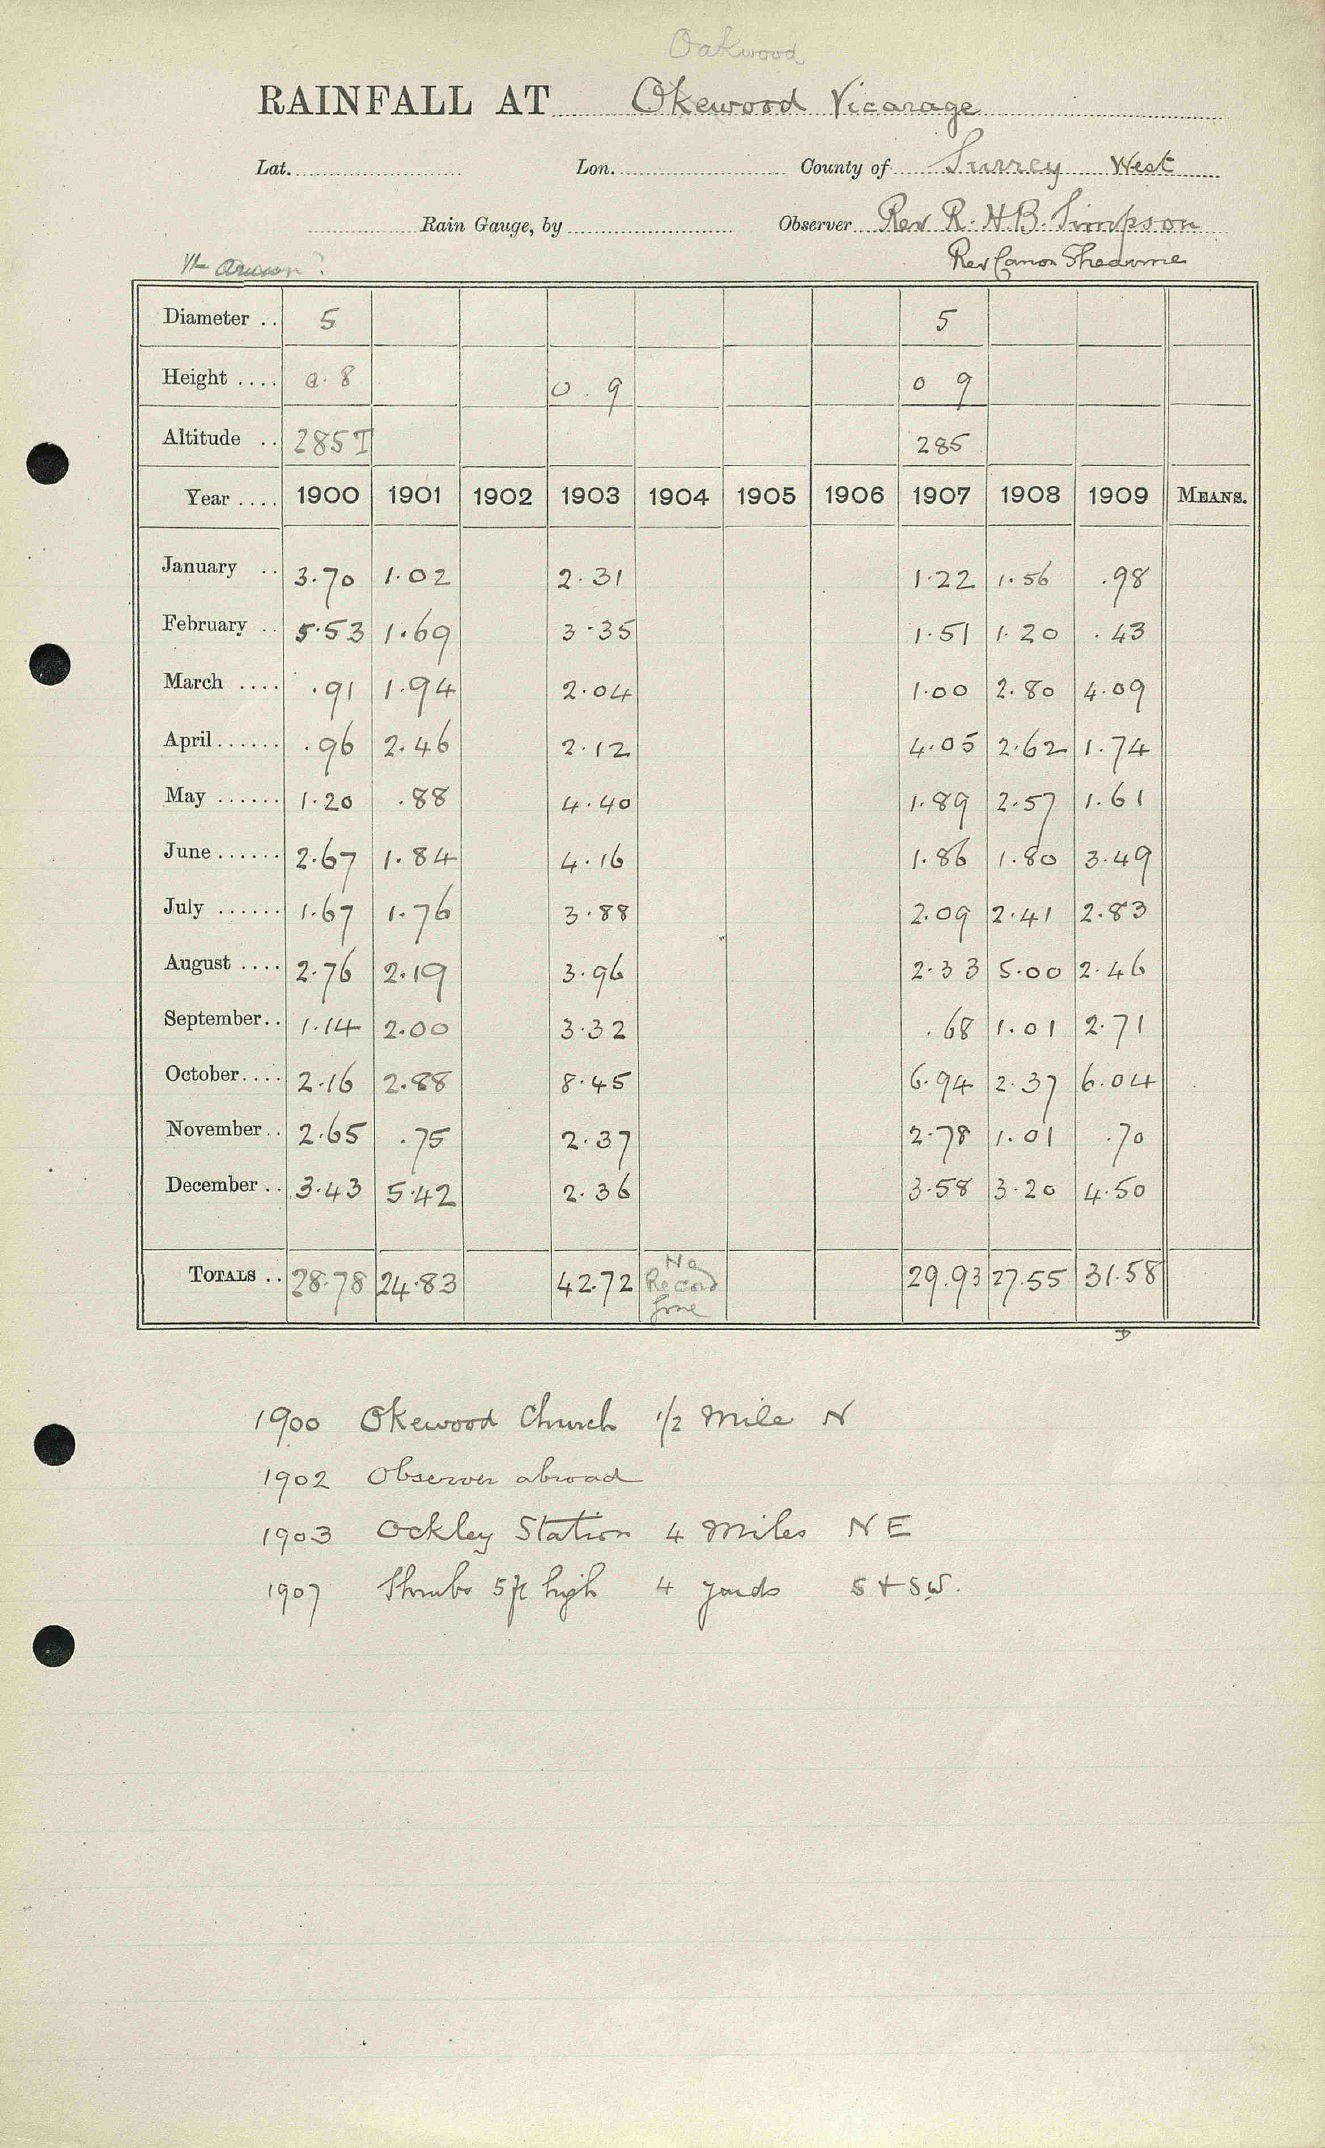 Oakwood
RAINFALL AT Okewood Vicarage
Lat. Lon. County of Surrey West
Rain Gauge, by Observer Rev R. H B. Simpson
Rev Canon Shearme
Diameter .. 5 5
Height .... 0. 8 0. 9 0 9
Altitude .. 285 T 285
Year .... 1900 1901 1902 1903 1904 1905 1906 1907 1908 1909 MEANS.
January .. 3.70 1.02 2.31 1.22 1.56 .98
February .. 5.53 1.69 3.35 1.51 1.20 .43
March .... .91 1.94 2.04 1.00 2.80 4.09
April ...... .96 2.46 2.12 4.05 2.62 1.74
May ...... 1.20 .88 4.40 1.89 2.57 1.61
June ...... 2.67 1.84 4.16 1.86 1.80 3.49
July ...... 1.67 1.76 3.88 2.09 2.41 2.83
August .... 2.76 2.19 3.96 2.33 5.00 2.46
September.. 1.14 2.00 3.32 .68 1.01 2.71
October.... 2.16 2.88 8.45 6.94 2.37 6.04
November.. 2.65 .75 2.37 2.78 1.01 .70
December .. 3.43 5.42 2.36 3.58 3.20 4.50
TOTALS .. 28.78 24.83 42.72 No Record 29.93 27.55 31.58
1900 Okewood Church 1/2 Mile N
1902 Observer abroad
1903 Ockley Station 4 Miles N E
1907 Shrubs 5 ft high 4 yards S + SW.